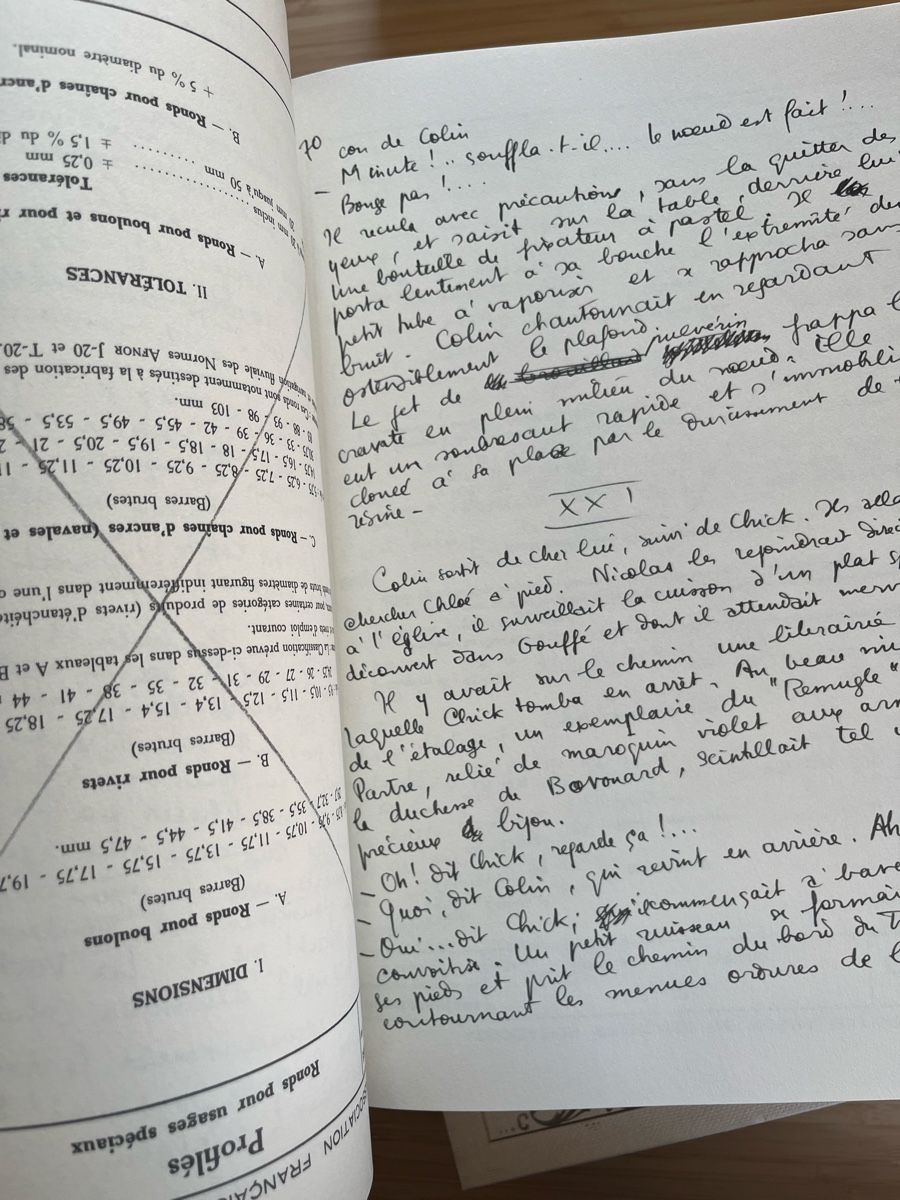 SOCIATION FRANÇA
Profilés
Ronds pour usages spéciaux
I. DIMENSIONS
A. — Ronds pour boulons
(Barres brutes)
9,75 - 10,75 - 11,75 - 13,75 - 15,75 - 17,75 - 19,7
32,7 - 35,5 - 38,5 - 41,5 - 44,5 - 47,5 mm.
B. — Ronds pour rivets
(Barres brutes)
10,5 - 11,5 - 12,5 - 13,4 - 15,4 - 17,25 - 18,25
26 - 27 - 29 - 31 - 32 - 35 - 38 - 41 - 44
La Classification prévue ci-dessus dans les tableaux A et B
d'emploi courant.
pour certaines catégories de produits (rivets d'étanchéité
de diamètres figurant indifféremment dans l'une
C. — Ronds pour chaînes d'ancres (navales et
(Barres brutes)
6,25 - 7,25 - 8,25 - 9,25 - 10,25 - 11,25 - 1
16,5 - 17,5 - 18 - 18,5 - 19,5 - 20,5 - 21 - 2
33 - 36 - 39 - 42 - 45,5 - 49,5 - 53,5 - 58
88 - 93 - 98 - 103 mm.
ronds sont notamment destinés à la fabrication des
navigation fluviale des Normes AFNOR J-20 et T-20.
II. TOLÉRANCES
A. — Ronds pour boulons et pour ri
Tolérances
20 mm inclus .......... ± 0,25 mm
jusqu'à 50 mm .......... ± 1,5 % du d
B. — Ronds pour chaînes d'ancr
+ 5 % du diamètre nominal.
70
cou de Colin
- Minute !.. souffla-t-il.... le nœud est fait !...
Bouge pas !....
Il recula avec précautions, sans la quitter des
yeux, et saisit sur la table, derrière lui
une bouteille de fixateur à pastel. Il
porta lentement à sa bouche l'extrémité du
petit tube à vaporiser et se rapprocha sans
bruit. Colin chantonnait en regardant
ostensiblement le plafond.
Le jet de brouillard pulvérin frappa l
cravate en plein milieu du nœud. Elle
eut un soubresaut rapide et s'immobili
clouée à sa place par le durcissement de
résine -
XXI
Colin sortit de chez lui, suivi de Chick. Ils alla
chercher Chloé à pied. Nicolas les rejoindrait direc
à l'église, il surveillait la cuisson d'un plat sp
découvert dans Gouffé et dont il attendait merv
Il y avait sur le chemin une librairie
laquelle Chick tomba en arrêt. Au beau mi
de l'étalage, un exemplaire du "Remugle"
Partre, relié de maroquin violet aux arm
la duchesse de Bovouard, scintillait tel
précieux bijou.
- Oh! dit Chick, regarde ça !...
- Quoi, dit Colin, qui revint en arrière. Ah
- Oui... dit Chick; il commençait à bave
convoitise. Un petit ruisseau se formai
ses pieds et prit le chemin du bord du t
contournant les menues ordures de l